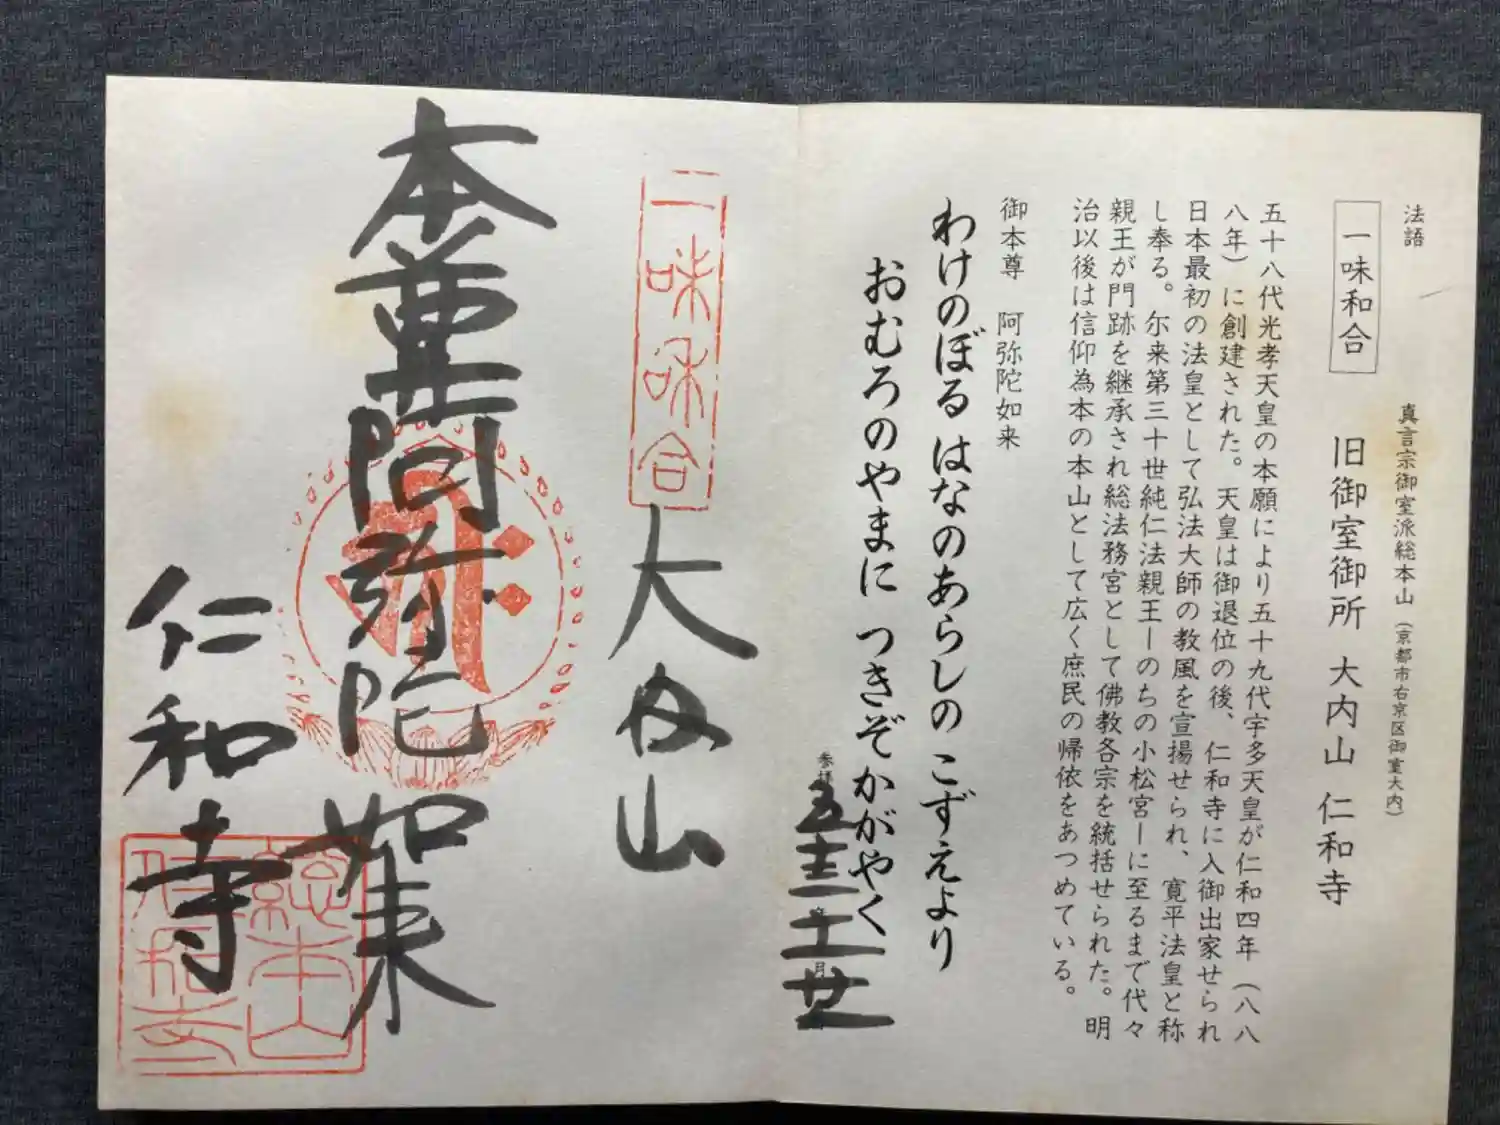 法語
真言宗御室派総本山（京都市右京区御室大内）
一味和合
旧御室御所 大内山 仁和寺
五十八代光孝天皇の本願により五十九代宇多天皇が仁和四年（八八
八年）に創建された。天皇は御退位の後、仁和寺に入御出家せられ
日本最初の法皇として弘法大師の教風を宣揚せられ、寛平法皇と称
し奉る。尓来第三十世純仁法親王ーのちの小松宮ーに至るまで代々
親王が門跡を継承され総法務宮として佛教各宗を統括せられた。明
治以後は信仰為本の本山として広く庶民の帰依をあつめている。
御本尊 阿弥陀如来
わけのぼる はなのあらしの こずえより
おむろのやまに つきぞかがやく
一味和合
大内山
阿弥陀如来
仁和寺
総本山
仁和寺